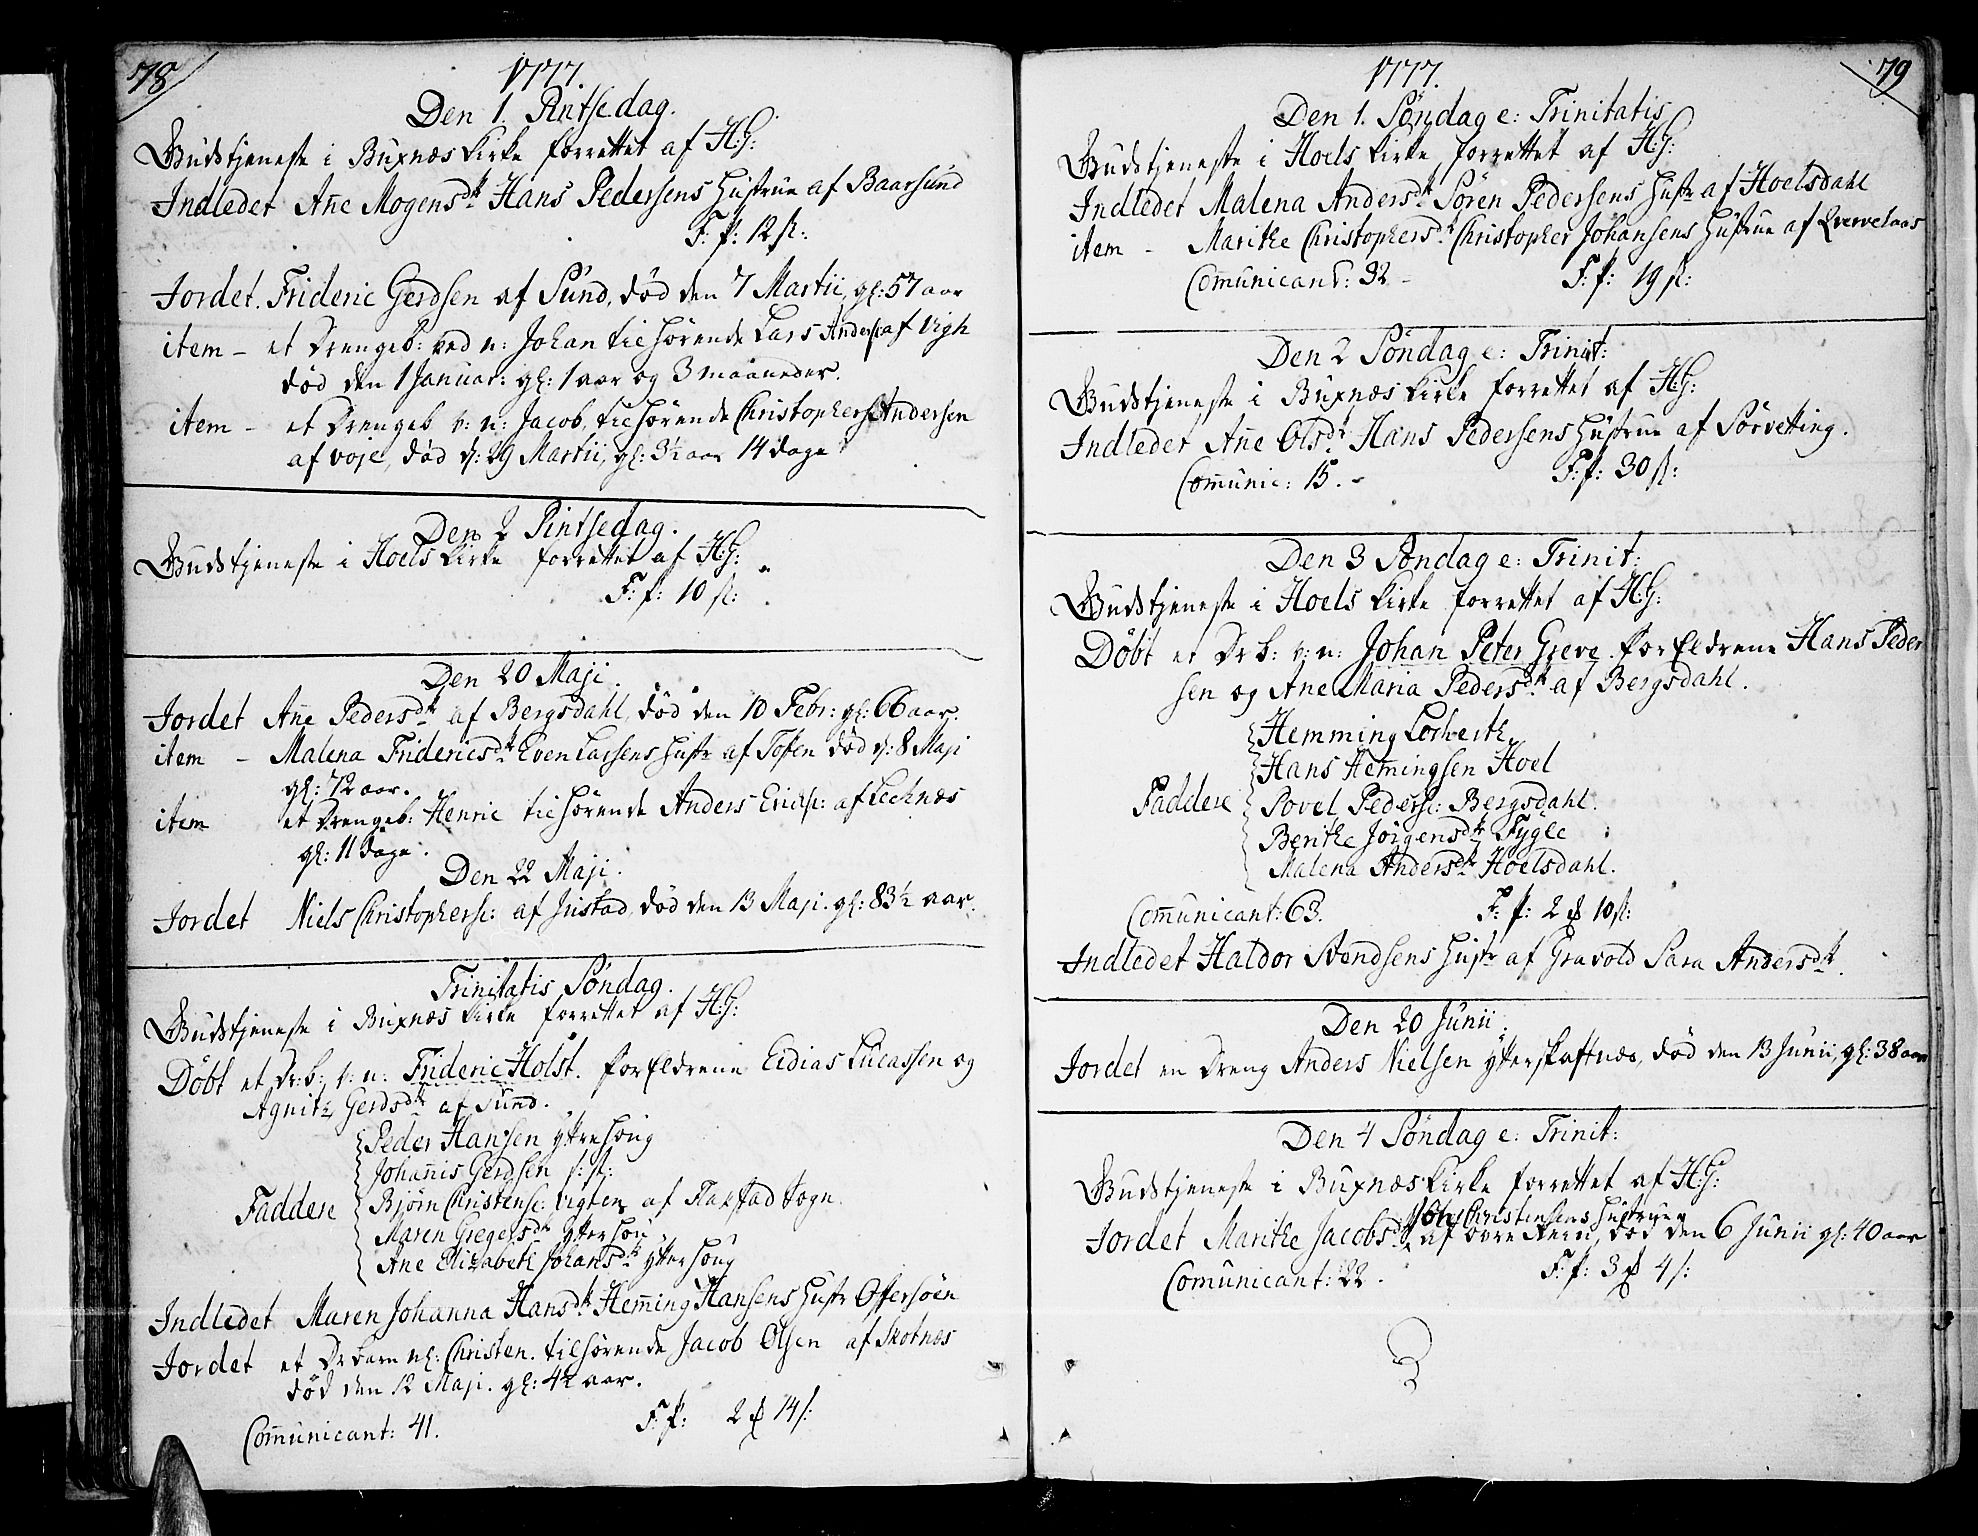 78
1777.
Den 1. Pintsedag.
Gudstjeneste i Buxnæs Kirke forrettet af H:G:
Indledet Ane Mogensdtr Hans Pedersens Hustrue af Baarsund
F: f: 12 s:
Jordet. Frideric Gerdsen af Sund, død den 7 Martii, gl: 57 aar
item - et Drengeb: ved n: Johan tilhørende Lars Anders: af Vigh
død den 1 Januar: gl: 1 aar og 3 maaneder.
item - et Drengeb v: n: Jacob, tilhørende Christophers Andersen
af voje, død d: 29 Martii, gl: 3½ aar 14 dage
Den 2 Pintsedag.
Gudstjeneste i Hoels Kirke forrettet af H:G:
F: f: 10 s:
Den 20 Maji.
Jordet Ane Pedersdtr af Bergsdahl, død den 10 Febr: gl: 66 aar.
item - Malena Fridericsdtr Even Larsens Hustr af Tofen død d: 8 Maji
gl: 72 aar.
item et Drengeb: Henric tilhørende Anders Erics: af Lecknæs
gl: 11 dage.
Den 22 Maji.
Jordet Niels Christophers: af Justad, død den 13 Maji. gl: 83½ aar.
Trinitatis Søndag.
Gudstjeneste i Buxnæs Kirke forrettet af H:G:
Döbt et Dr:b: v: n: Frideric Holst. forEldrene Eidias Lucassen og
Agnith Gerdsdtr af Sund.
Peder Hansen yttrehöug
Johannis Gerdsen s: st:
Faddere Bjørn Christens: vigten af Flakstad Sogn.
Maren Gregersdtr ytterhöu
Ane Elizabeth Johansdtr ytterhöug
Indledet Maren Johanna Hansdtr Heming Hansens Hustr Offersöen
Jordet et Dr barn nl: Christen. tilhørende Jacob Olsen af Skotnæs
død den 12 Maji. gl: 4½ aar.
Comunicant: 41. F: f: 2 ℔ 14 s:
79
1777.
Den 1. Søndag e: Trinitatis
Gudstjeneste i Hoels Kirke, forrettet af H:G:
Indledet Malena Andersdtr Sören Pedersens Hustr af Hoelsdahl
item - Marithe Christophersdtr Christopher Johansens Hustrue af
Comunicant: 32 - F: f: 19 s:
Den 2 Søndag e: Trinit:
Gudstjeneste i Buxnæs Kirke forrettet af H:G:
Indledet Ane Olsdr Hans Pedersens Hustrue af Sörvetting.
Comunic: 15. - F: f: 30 s:
Den 3 Søndag e: Trinit:
Gudstjeneste i Hoels Kirke forrettet af H:G:
Döbt et Dr b: v: n: Johan Peter Greve. forEldrene Hans Peder
sen og Ane Maria Pedersdtr af Bergsdahl.
Hemming
Hans Hemingsen Hoel
Faddere Povel Peders: Bergsdahl.
Berithe Jörgensdtr Fygle
Malena Andersdtr Hoelsdahl.
Comunicant: 63. F: f: 2 ℔ 10 s:
Indledet Haldor Svendsens Hustr af Gravold Sara Andersdtr.
Den 20 Junii.
Jordet en Dreng Anders Nielsen ytterskaftnæs, død den 13 Junii, gl: 38 aar
Den 4 Søndag e: Trinit:
Gudstjeneste i Buxnæs Kirke forrettet af H:G:
Christensens Hustrue
Jordet Marithe Jacobsdtr af övre, død den 6 Junii gl: 40 aar
Comunicant: 22. F: f: 3 ℔ 4 s: